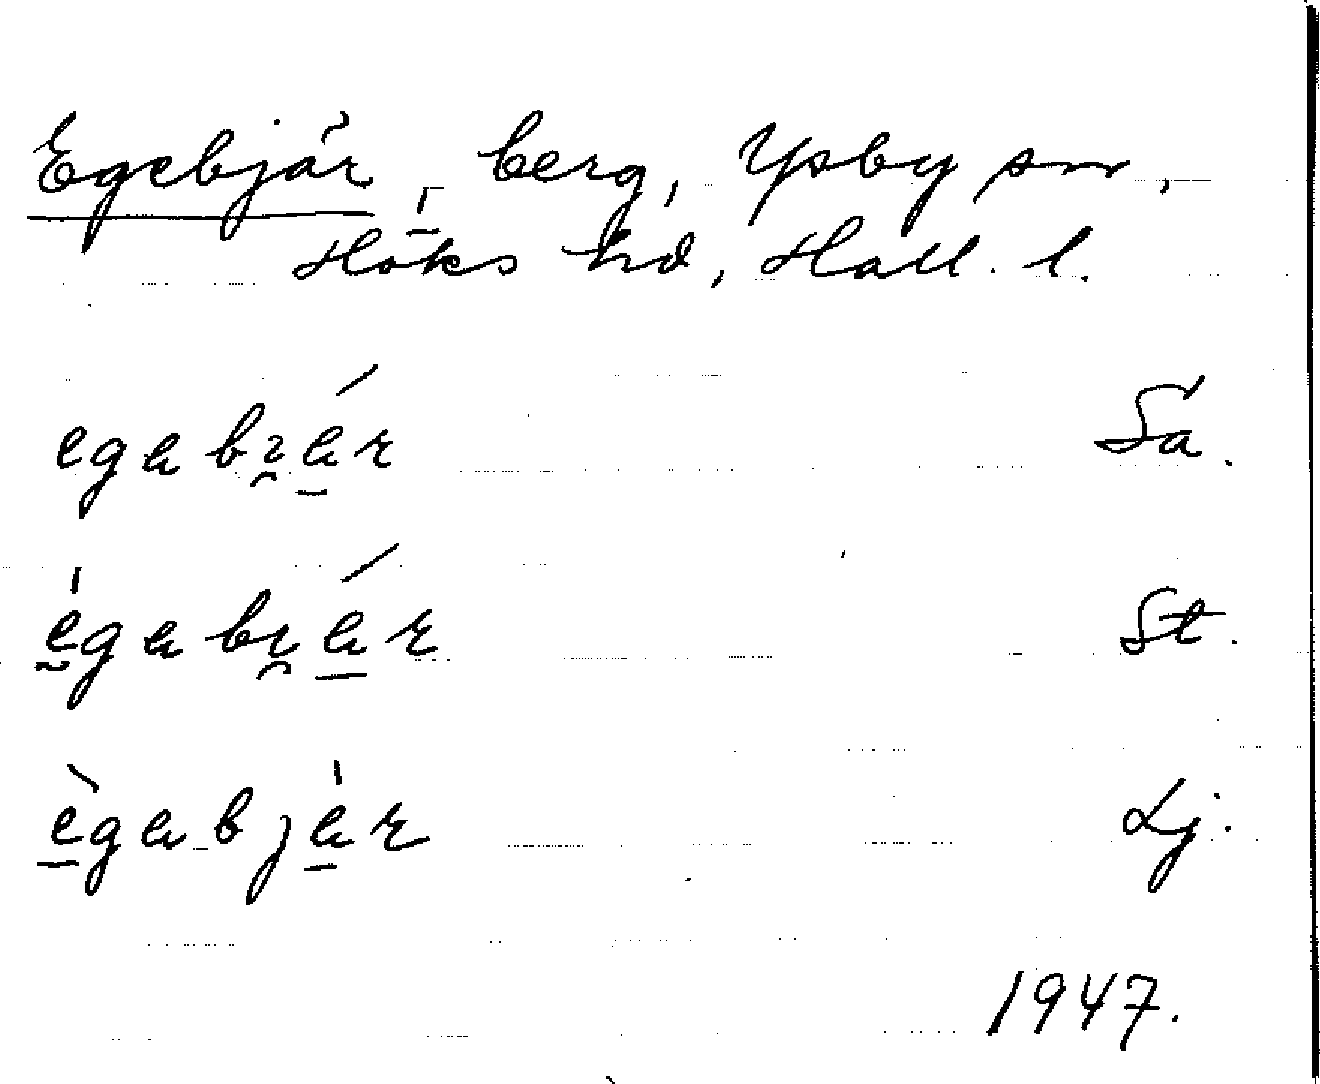 Egebjär, berg, Ysby sn,
Höks hd, Hall. l.
egabɿár Sa.
égabɿár St.
ègabjár Lj.
1947.